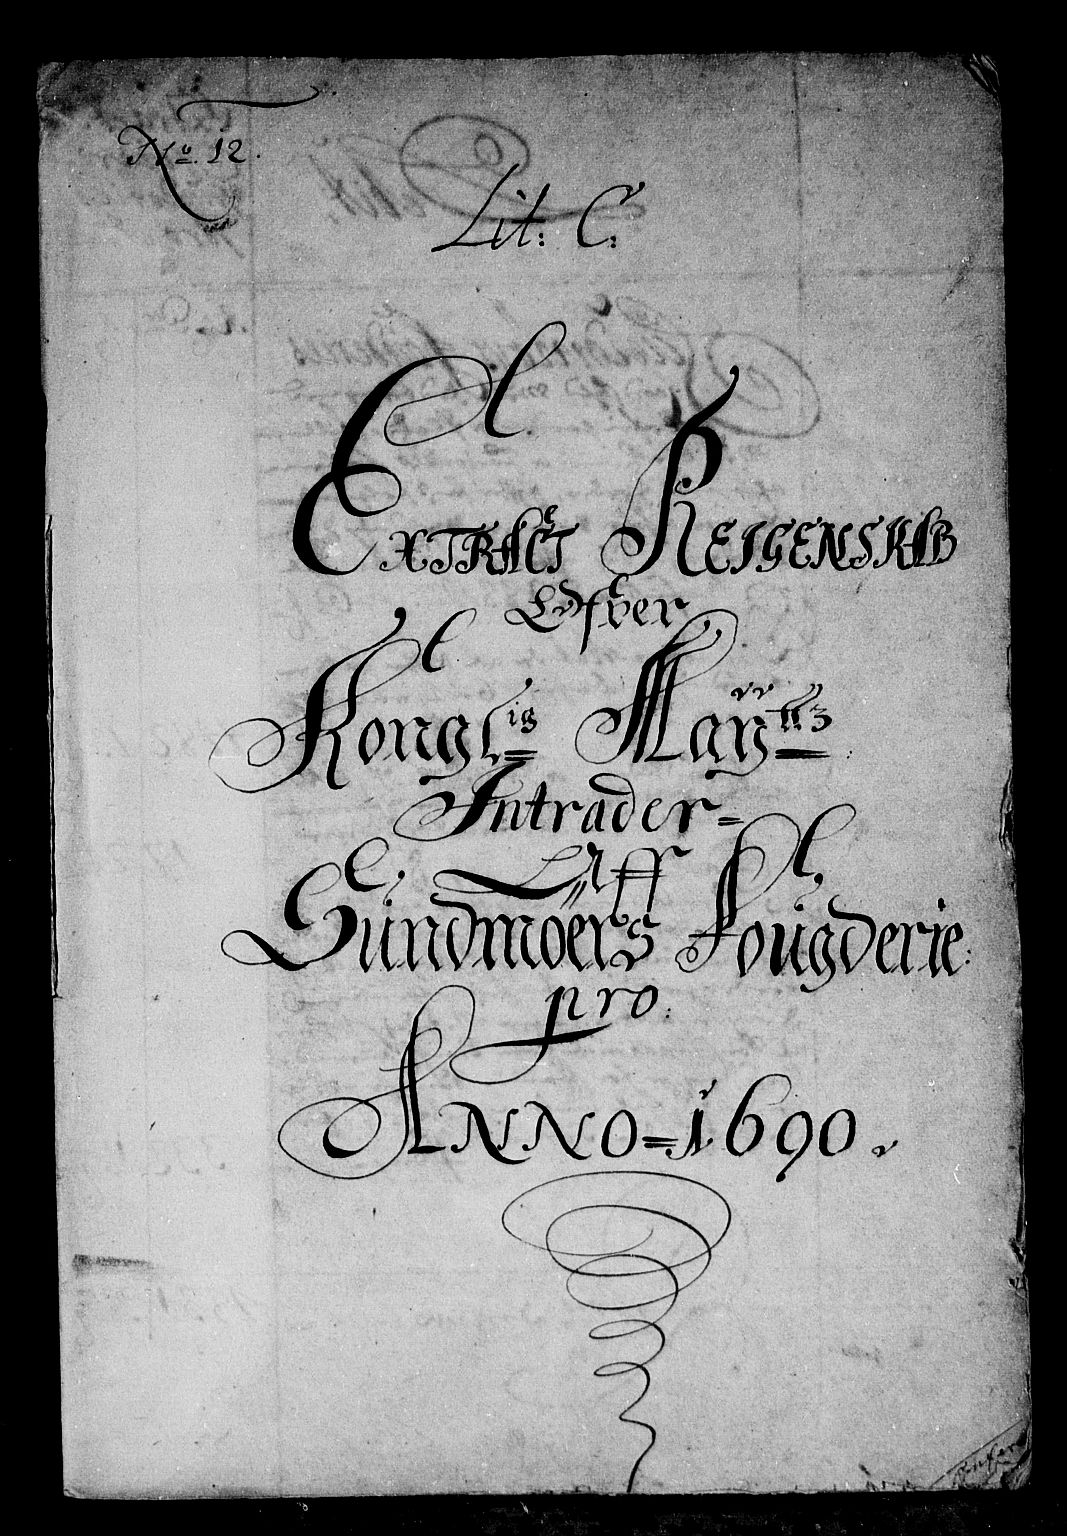 No. 12.
Lit: C:
Extract Reigenskab
Ofver
Kongl.ig Maÿttz
Intrader
Aff
Sündmöers Foügderie:
pro.
Anno 1690.